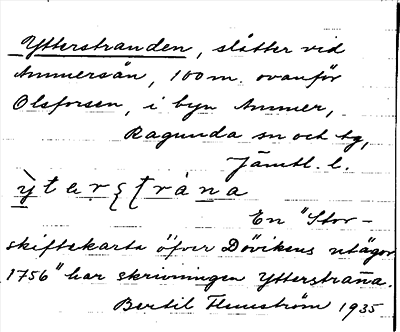 Ytterstranden, slåtter vid
Ammersån, 100 m. ovanför
Olsforsen, i byn Ammer,
Ragunda sn och tg,
Jämtl. l.
ỳtarʂtrána
En "Stor-
skifteskarta öfver Dövikens utägor
1756" har skrivningen Ytterstrana.
Bertil Flemström 1935